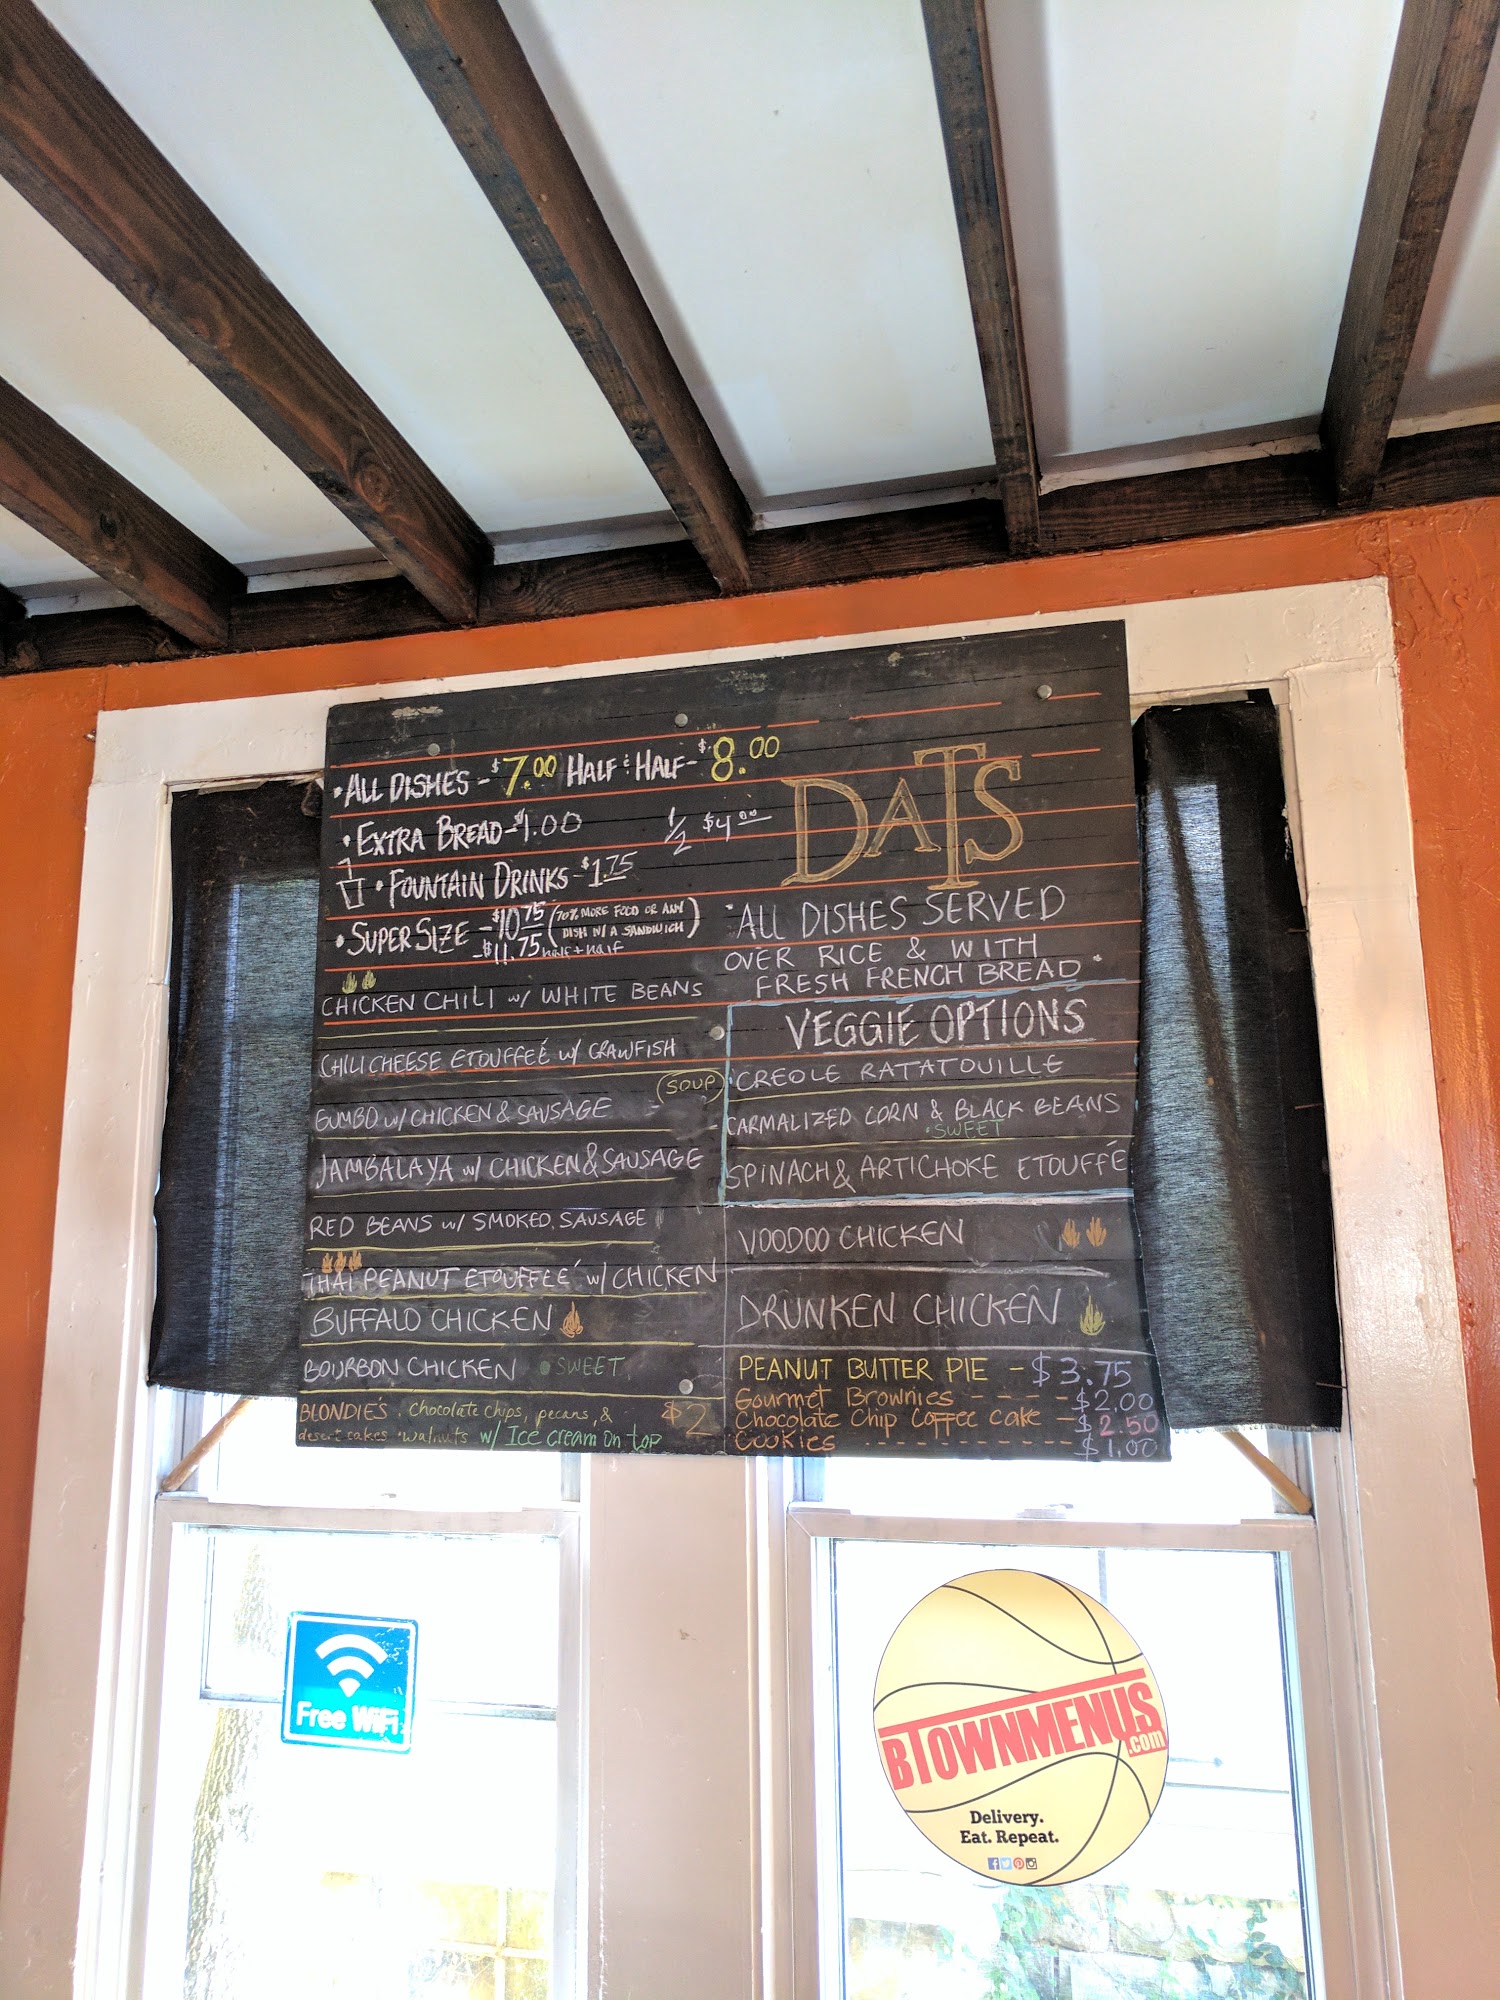 • ALL DISHES - $7.00 HALF & HALF - $8.00
• EXTRA BREAD - $1.00 1/2 $4.00
• FOUNTAIN DRINKS - $1.75
• SUPER SIZE - $10.75 (70% MORE FOOD OR ANY DISH W/ A SANDWICH)
- $11.75 HALF + HALF
CHICKEN CHILI w/ WHITE BEANS
CHILI CHEESE ETOUFFEÉ w/ CRAWFISH
SOUP
GUMBO w/ CHICKEN & SAUSAGE
JAMBALAYA w/ CHICKEN & SAUSAGE
RED BEANS w/ SMOKED SAUSAGE
THAI PEANUT ETOUFFEÉ w/ CHICKEN
BUFFALO CHICKEN
BOURBON CHICKEN • SWEET
BLONDIE'S . chocolate chips, pecans, & $2
desert cakes walnuts w/ Ice cream on top
DATS
"ALL DISHES SERVED
OVER RICE & WITH
FRESH FRENCH BREAD"
VEGGIE OPTIONS
CREOLE RATATOUILLE
CARMALIZED CORN & BLACK BEANS
• SWEET
SPINACH & ARTICHOKE ETOUFFÉ
VOODOO CHICKEN
DRUNKEN CHICKEN
PEANUT BUTTER PIE - $3.75
Gourmet Brownies - - - - - $2.00
Chocolate Chip Coffee Cake - $2.50
Cookies - - - - - - - - - - $1.00
Free WiFi
BTOWNMENUS
.com
Delivery.
Eat. Repeat.